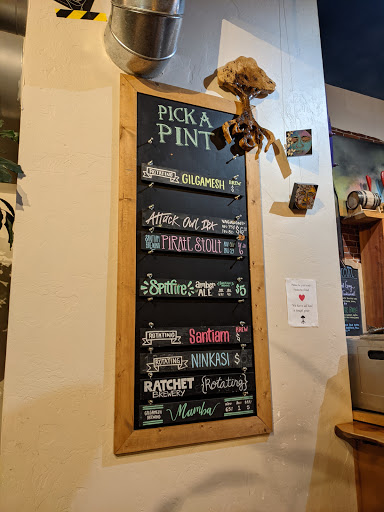 PICK A
PINT
ROTATING GILGAMESH BREW $
Attack Owl IPA
SANTIAM BREWING PIRATE STOUT
Spitfire amber ALE $5
ROTATING Santiam BREW $
ROTATING NINKASI $
RATCHET BREWERY {Rotating}
GILGAMESH BREWING Mamba